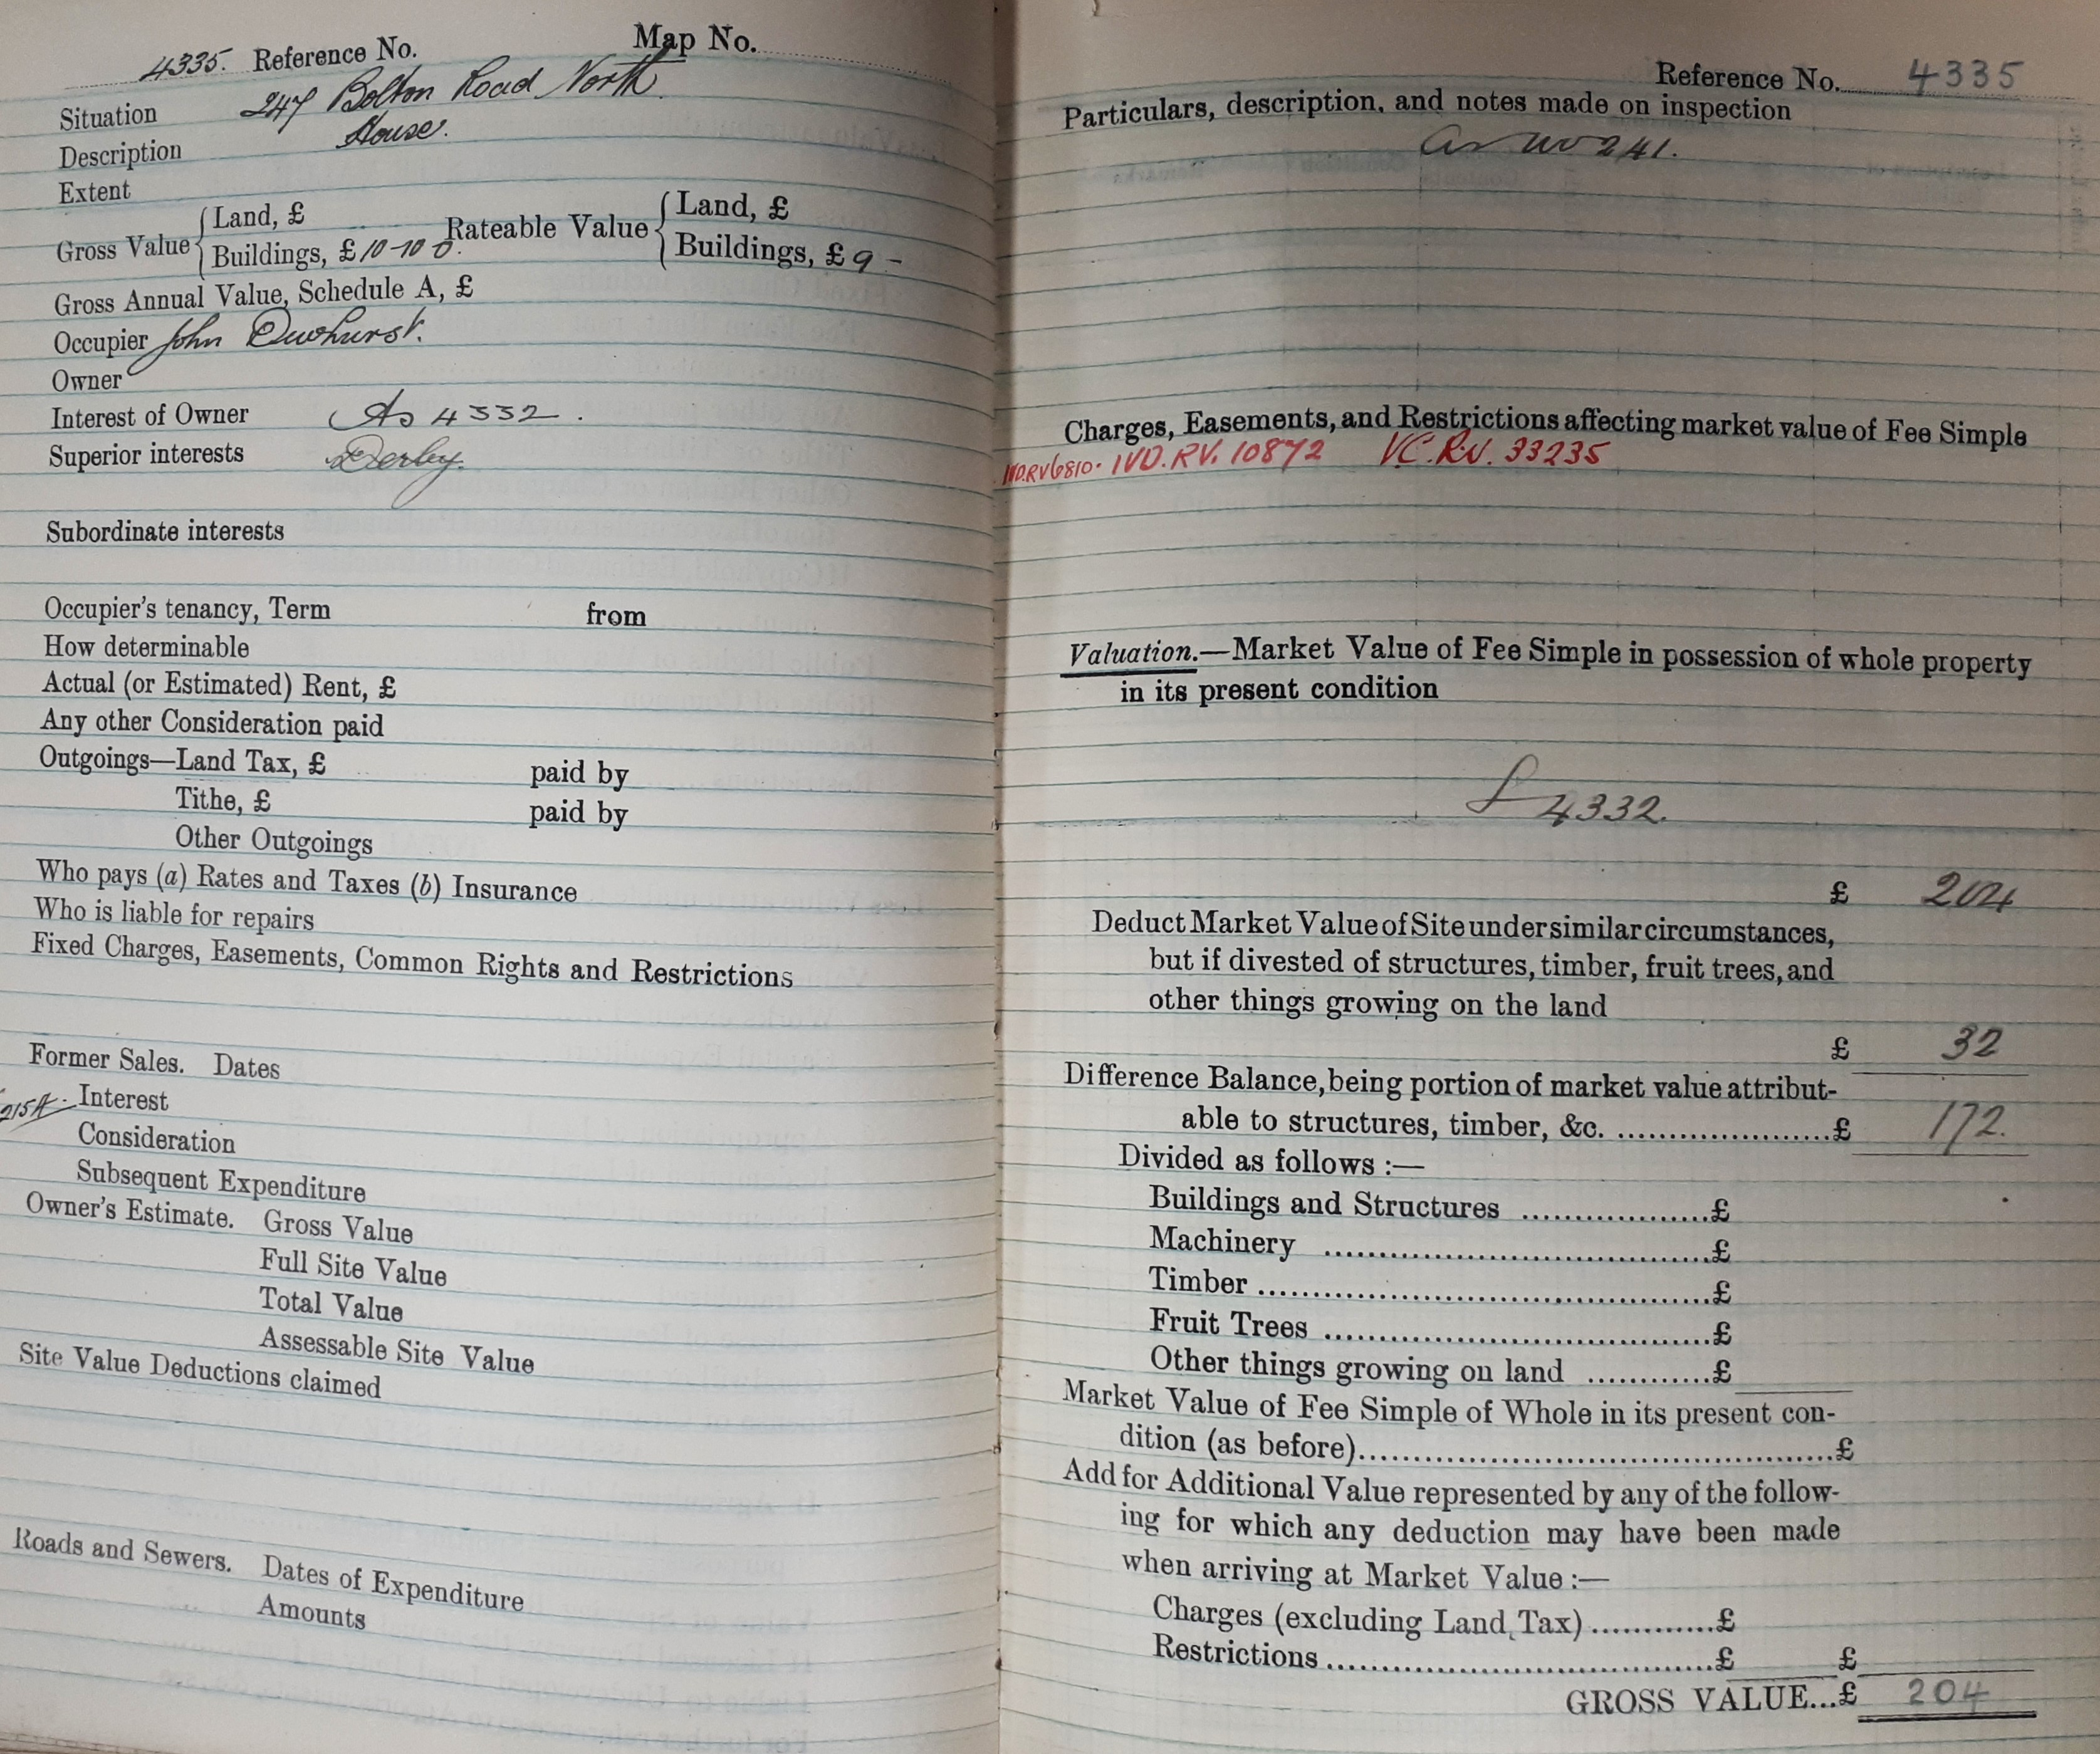 4335. Reference No. Map No.
Situation 247 Bolton Road North
Description House.
Extent
Gross Value { Land, £
Buildings, £ 10-10 0. Rateable Value { Land, £
Buildings, £ 9 -
Gross Annual Value, Schedule A, £
Occupier John Dewhurst.
Owner
Interest of Owner As 4332.
Superior interests Derby.
Subordinate interests
Occupier's tenancy, Term from
How determinable
Actual (or Estimated) Rent, £
Any other Consideration paid
Outgoings—Land Tax, £ paid by
Tithe, £ paid by
Other Outgoings
Who pays (a) Rates and Taxes (b) Insurance
Who is liable for repairs
Fixed Charges, Easements, Common Rights and Restrictions
Former Sales. Dates
Interest
Consideration
Subsequent Expenditure
Owner's Estimate. Gross Value
Full Site Value
Total Value
Assessable Site Value
Site Value Deductions claimed
Roads and Sewers. Dates of Expenditure
Amounts
Reference No. 4335
Particulars, description, and notes made on inspection
as no 241.
Charges, Easements, and Restrictions affecting market value of Fee Simple
IVD.RV6810. IVD.RV. 10872 VC.RV. 33235
Valuation.—Market Value of Fee Simple in possession of whole property
in its present condition
4332.
£ 204
Deduct Market Value of Site under similar circumstances,
but if divested of structures, timber, fruit trees, and
other things growing on the land
£ 32
Difference Balance, being portion of market value attribut-
able to structures, timber, &c. ......................£ 172.
Divided as follows :—
Buildings and Structures ...................£
Machinery .......................................£
Timber ..............................................£
Fruit Trees .......................................£
Other things growing on land ............£
Market Value of Fee Simple of Whole in its present con-
dition (as before)................................................£
Add for Additional Value represented by any of the follow-
ing for which any deduction may have been made
when arriving at Market Value :—
Charges (excluding Land Tax) .............£
Restrictions .......................................£ £
GROSS VALUE...£ 204